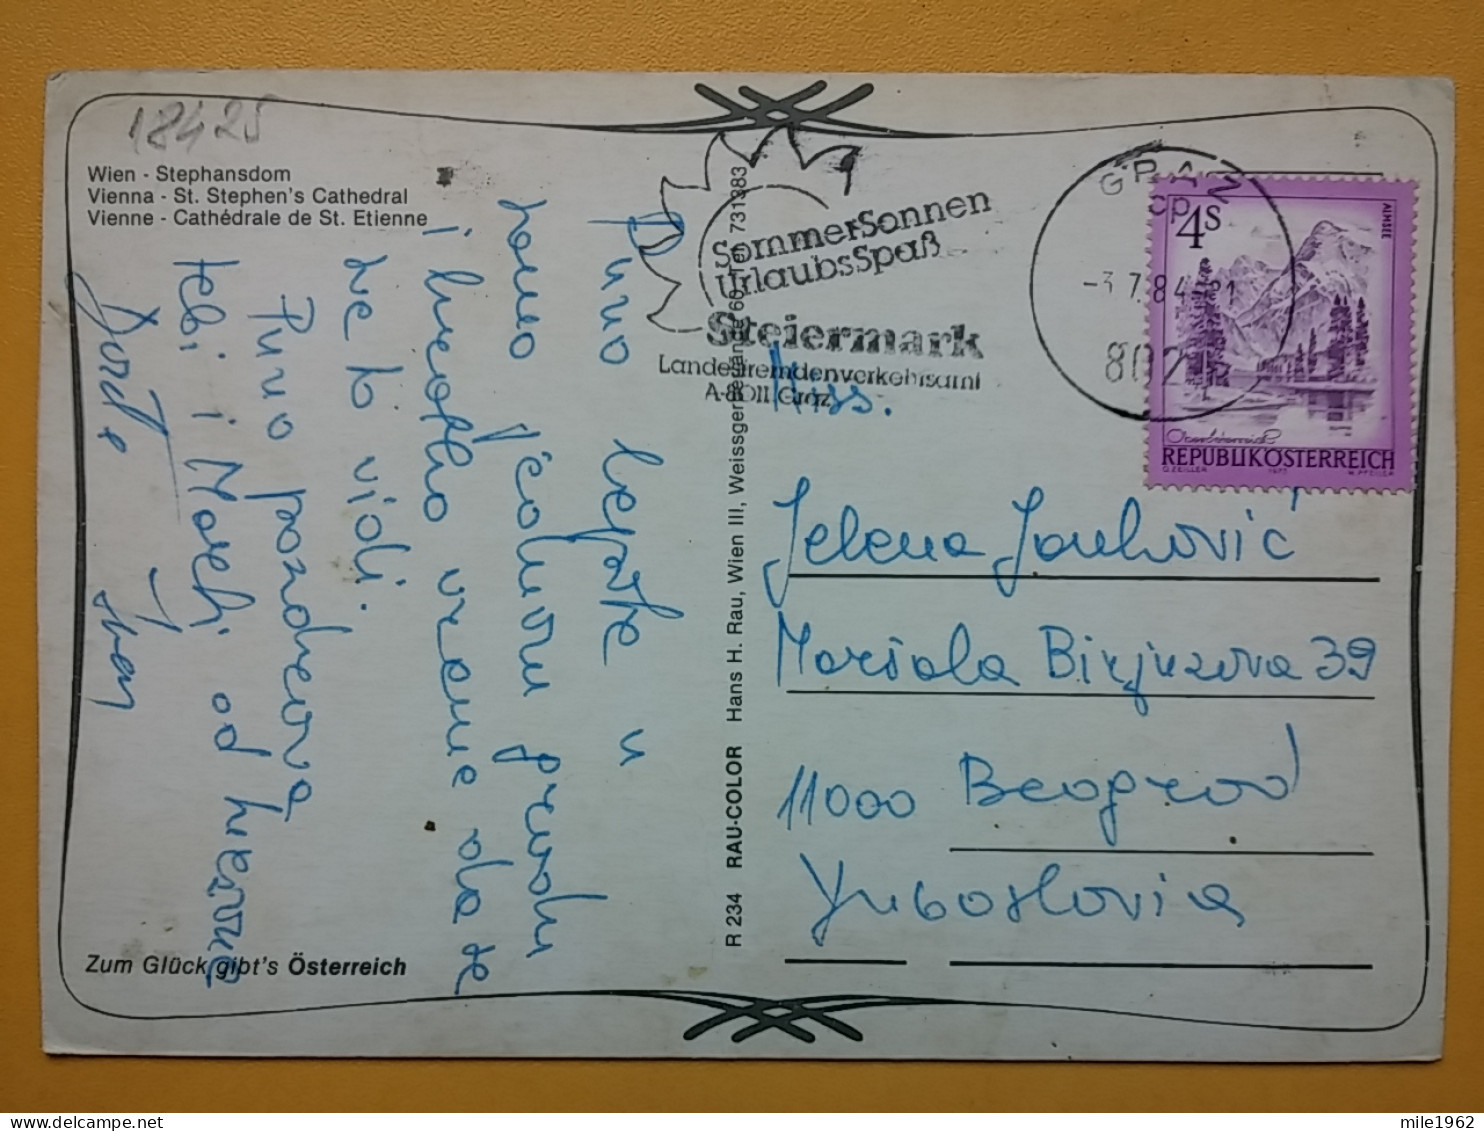 18425
Wien - Stephansdom
Vienna - St. Stephen's Cathedral
Vienne - Cathédrale de St. Etienne
Puno lepše u
samo jednom gradu
i nekoliko vreme da se
sve to vidi.
Puno pozdrava
tebi i od
Đorđe
Ivan
Zum Glück gibt's Österreich
R 234 RAU-COLOR Hans H. Rau, Wien III, Weissgerberlände 60, Tel. 731383
SommerSonnen
UrlaubsSpaß
Steiermark
Landesfremdenverkehrsamt
A-8011 Graz
GRAZ
cp
-3.7.84-21
802
4S
ALMSEE
Oberösterreich
REPUBLIK ÖSTERREICH
O. ZEILLER 1973 W. PFEILER
Miss.
Jelena Janković
Maršala Birjuzova 39
11000 Beograd
Yugoslovia
mile1962